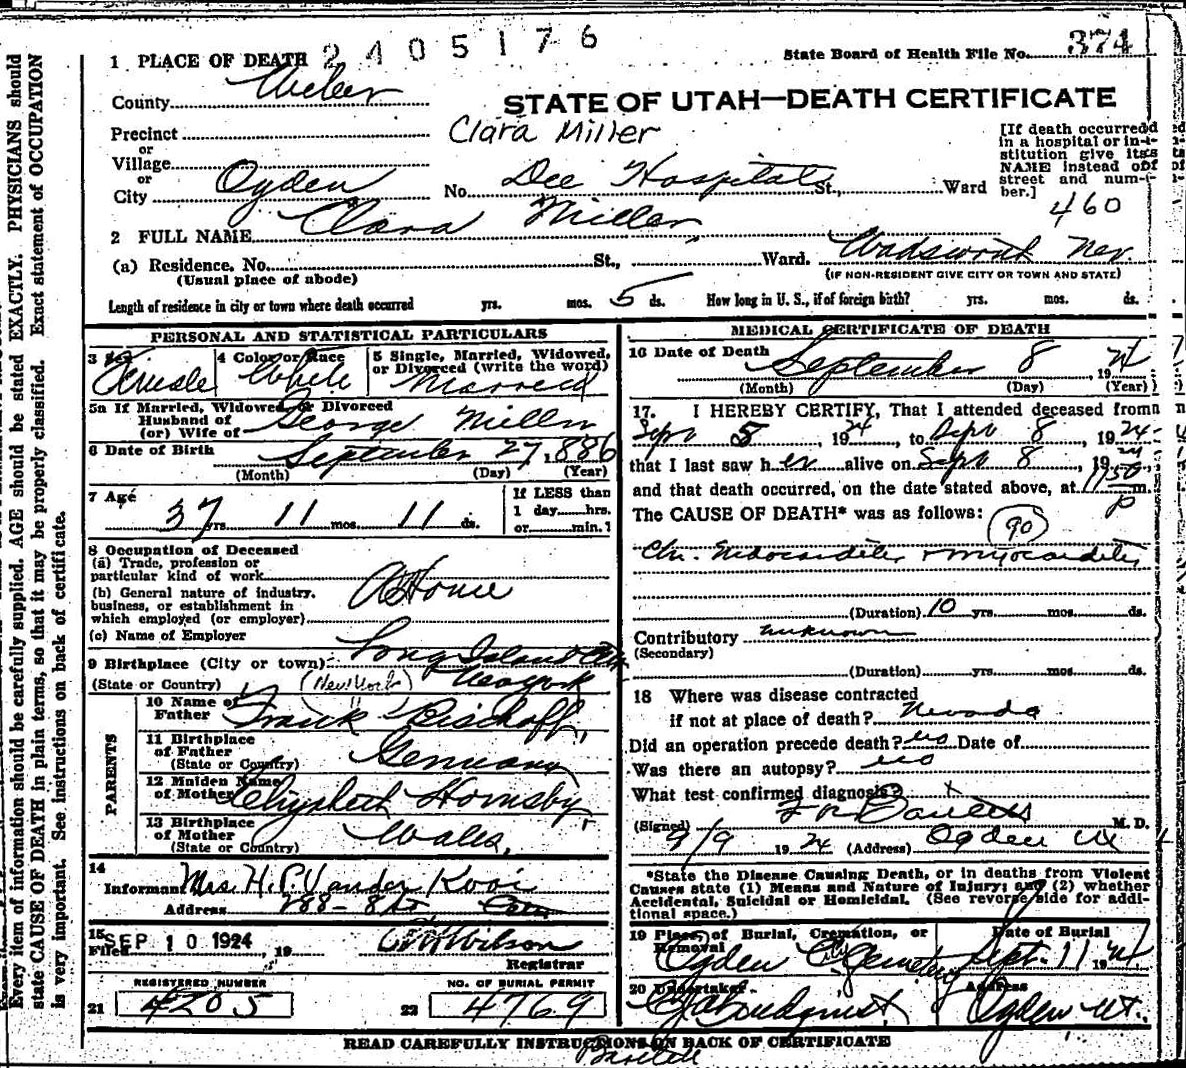 2405176
State Board of Health File No. 374
1 PLACE OF DEATH
County Weber
STATE OF UTAH—DEATH CERTIFICATE
Precinct
Clara Miller
or
Village
or
City Ogden No. Dee Hospital St., Ward
[If death occurred in a hospital or institution give its NAME instead of street and number.]
460
2 FULL NAME Clara Miller
(a) Residence. No. St., Ward. Wadsworth Nev.
(Usual place of abode)
(IF NON-RESIDENT GIVE CITY OR TOWN AND STATE)
Length of residence in city or town where death occurred yrs. mos. 5 ds. How long in U. S., if of foreign birth? yrs. mos. ds.
PERSONAL AND STATISTICAL PARTICULARS
3 Sex Female
4 Color or Race White
5 Single, Married, Widowed, or Divorced (write the word) Married
5a If Married, Widowed, or Divorced
Husband of
(or) Wife of George Miller
6 Date of Birth September 27, 1886
(Month) (Day) (Year)
7 Age 37 yrs. 11 mos. 11 ds.
If LESS than
1 day......hrs.
or......min.?
8 Occupation of Deceased
(a) Trade, profession or
particular kind of work
(b) General nature of industry,
business, or establishment in
which employed (or employer)
At Home
(c) Name of Employer
9 Birthplace (City or town) Long Island City
(State or Country) (New York) New York
PARENTS
10 Name of Father Frank Bischoff
11 Birthplace of Father
(State or Country) Germany
12 Maiden Name of Mother Elizabeth Hornsby
13 Birthplace of Mother
(State or Country) Wales
14
Informant Mrs. H. P. Vander Kooi
Address 288 - 8 St
15
Filed SEP 10 1924, 19 Wilson
Registrar
REGISTERED NUMBER
21 4205
NO. OF BURIAL PERMIT
22 4769
MEDICAL CERTIFICATE OF DEATH
16 Date of Death September 8, 1924
(Month) (Day) (Year)
17. I HEREBY CERTIFY, That I attended deceased from
Sept 5, 1924, to Sept 8, 1924
that I last saw her alive on Sept 8, 1924
and that death occurred, on the date stated above, at 1150 p m.
The CAUSE OF DEATH* was as follows:
90
Chr. Endocarditis + myocarditis
(Duration) 10 yrs. mos. ds.
Contributory unknown
(Secondary)
(Duration) yrs. mos. ds.
18 Where was disease contracted
if not at place of death? Nevada
Did an operation precede death? no Date of
Was there an autopsy? no
What test confirmed diagnosis? x
(Signed) M. D.
9/9 1924 (Address) Ogden Ut
*State the Disease Causing Death, or in deaths from Violent
Causes state (1) Means and Nature of Injury; and (2) whether
Accidental, Suicidal or Homicidal. (See reverse side for addi-
tional space.)
19 Place of Burial, Cremation, or Removal
Ogden City Cemetery
Date of Burial
Sept. 11 1924
20 Undertaker
Lindquist
Address
Ogden Ut.
READ CAREFULLY INSTRUCTIONS ON BACK OF CERTIFICATE
Every item of information should be carefully supplied. AGE should be stated EXACTLY. PHYSICIANS should
state CAUSE OF DEATH in plain terms, so that it may be properly classified. Exact statement of OCCUPATION
is very important. See instructions on back of certificate.